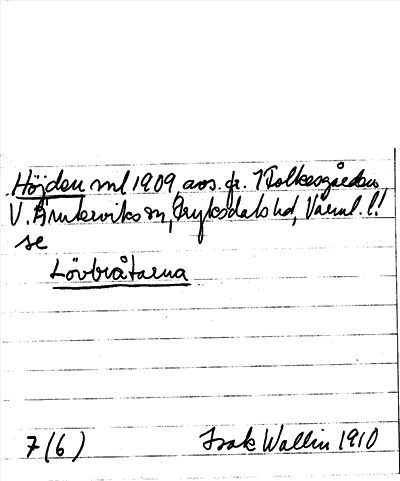 Höjden ml 1909 avs. fr. 1 Folkesgården
V. Ämterviks sn, Fryksdals hd, Värml. l.!
se
Lövbråtarna
7 (6) Isak Wallin 1910